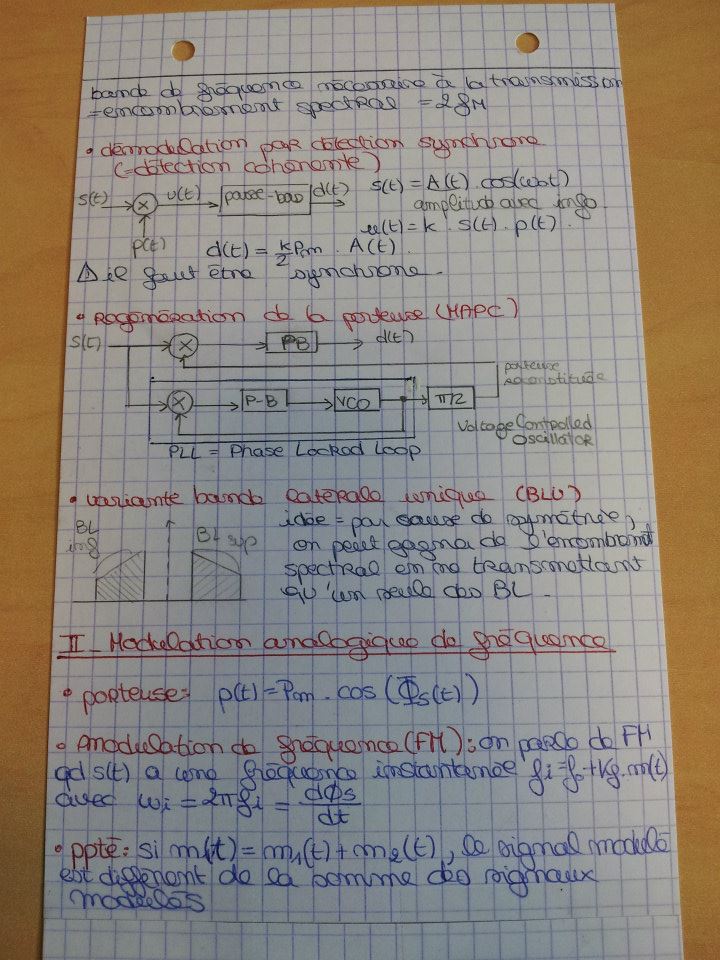 bande de fréquence nécessaire à la transmission
= encombrement spectral = 2fM
• démodulation par détection synchrone
(=détection cohérente)
s(t) × u(t) passe-bas d(t) s(t) = A(t) . cos(ω0t)
amplitude avec info.
p(t) u(t) = k . s(t) . p(t) .
d(t) = k/2 Pm . A(t) .
⚠ il faut être synchrone.
• Régénération de la porteuse (MAPC)
s(t) × PB d(t)
porteuse
reconstituée
× P-B VCO π/2
Voltage Controlled
Oscillator
PLL = Phase Locked Loop
• variante bande latérale unique (BLU)
BL
inf
BL sup
idée = par cause de symétrie,
on peut gagner de l'encombrement
spectral en ne transmettant
qu'un seule des BL.
II - Modulation analogique de fréquence
• porteuse: p(t) = Pm . cos(Φs(t))
• modulation de fréquence (FM): on parle de FM
qd s(t) a une fréquence instantanée fi = fo + Kf.m(t)
avec ωi = 2πfi = dΦs/dt
• ppté: si m(t) = m1(t) + m2(t), le signal modulé
est différent de la somme des signaux
modulés